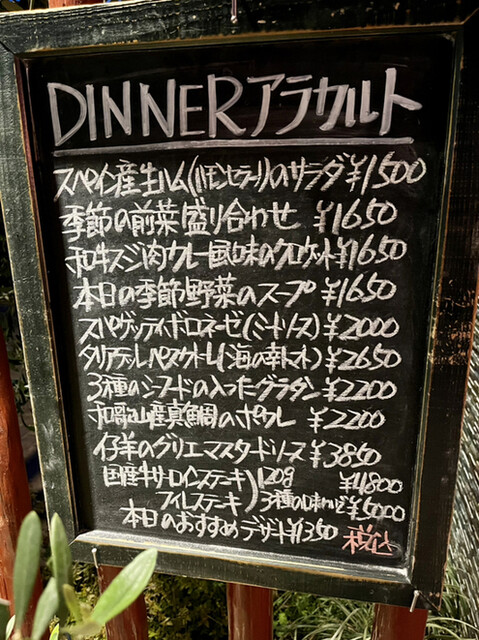 DINNERアラカルト
スペイン産生ハム(ハモンセラーノ)のサラダ ¥1500
季節の前菜盛り合わせ ¥1650
和牛スジ肉カレー風味のクロケット ¥1650
本日の季節野菜のスープ ¥1650
スパゲッティボロネーゼ(ミートソース) ¥2000
タリアテッレペスカトーレ(海の幸トマト) ¥2650
3種のシーフードの入ったグラタン ¥2200
和歌山産真鯛のポワレ ¥2200
仔羊のグリエマスタードソース ¥3850
国産牛サーロインステーキ 120g ¥4800
フィレステーキ 3種の味わい ¥5000
本日のおすすめデザート ¥1350 税込